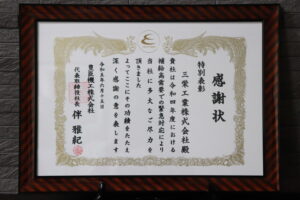 感謝状
特別表彰
三栄工業株式会社殿
貴社は令和四年度における
補給高需要での緊急対応により
当社に多大なご尽力を
頂きました
よってここにその功績をたたえ
深く感謝の意を表します
令和五年六月十五日
豊臣機工株式会社
代表取締役社長 伴 雅紀